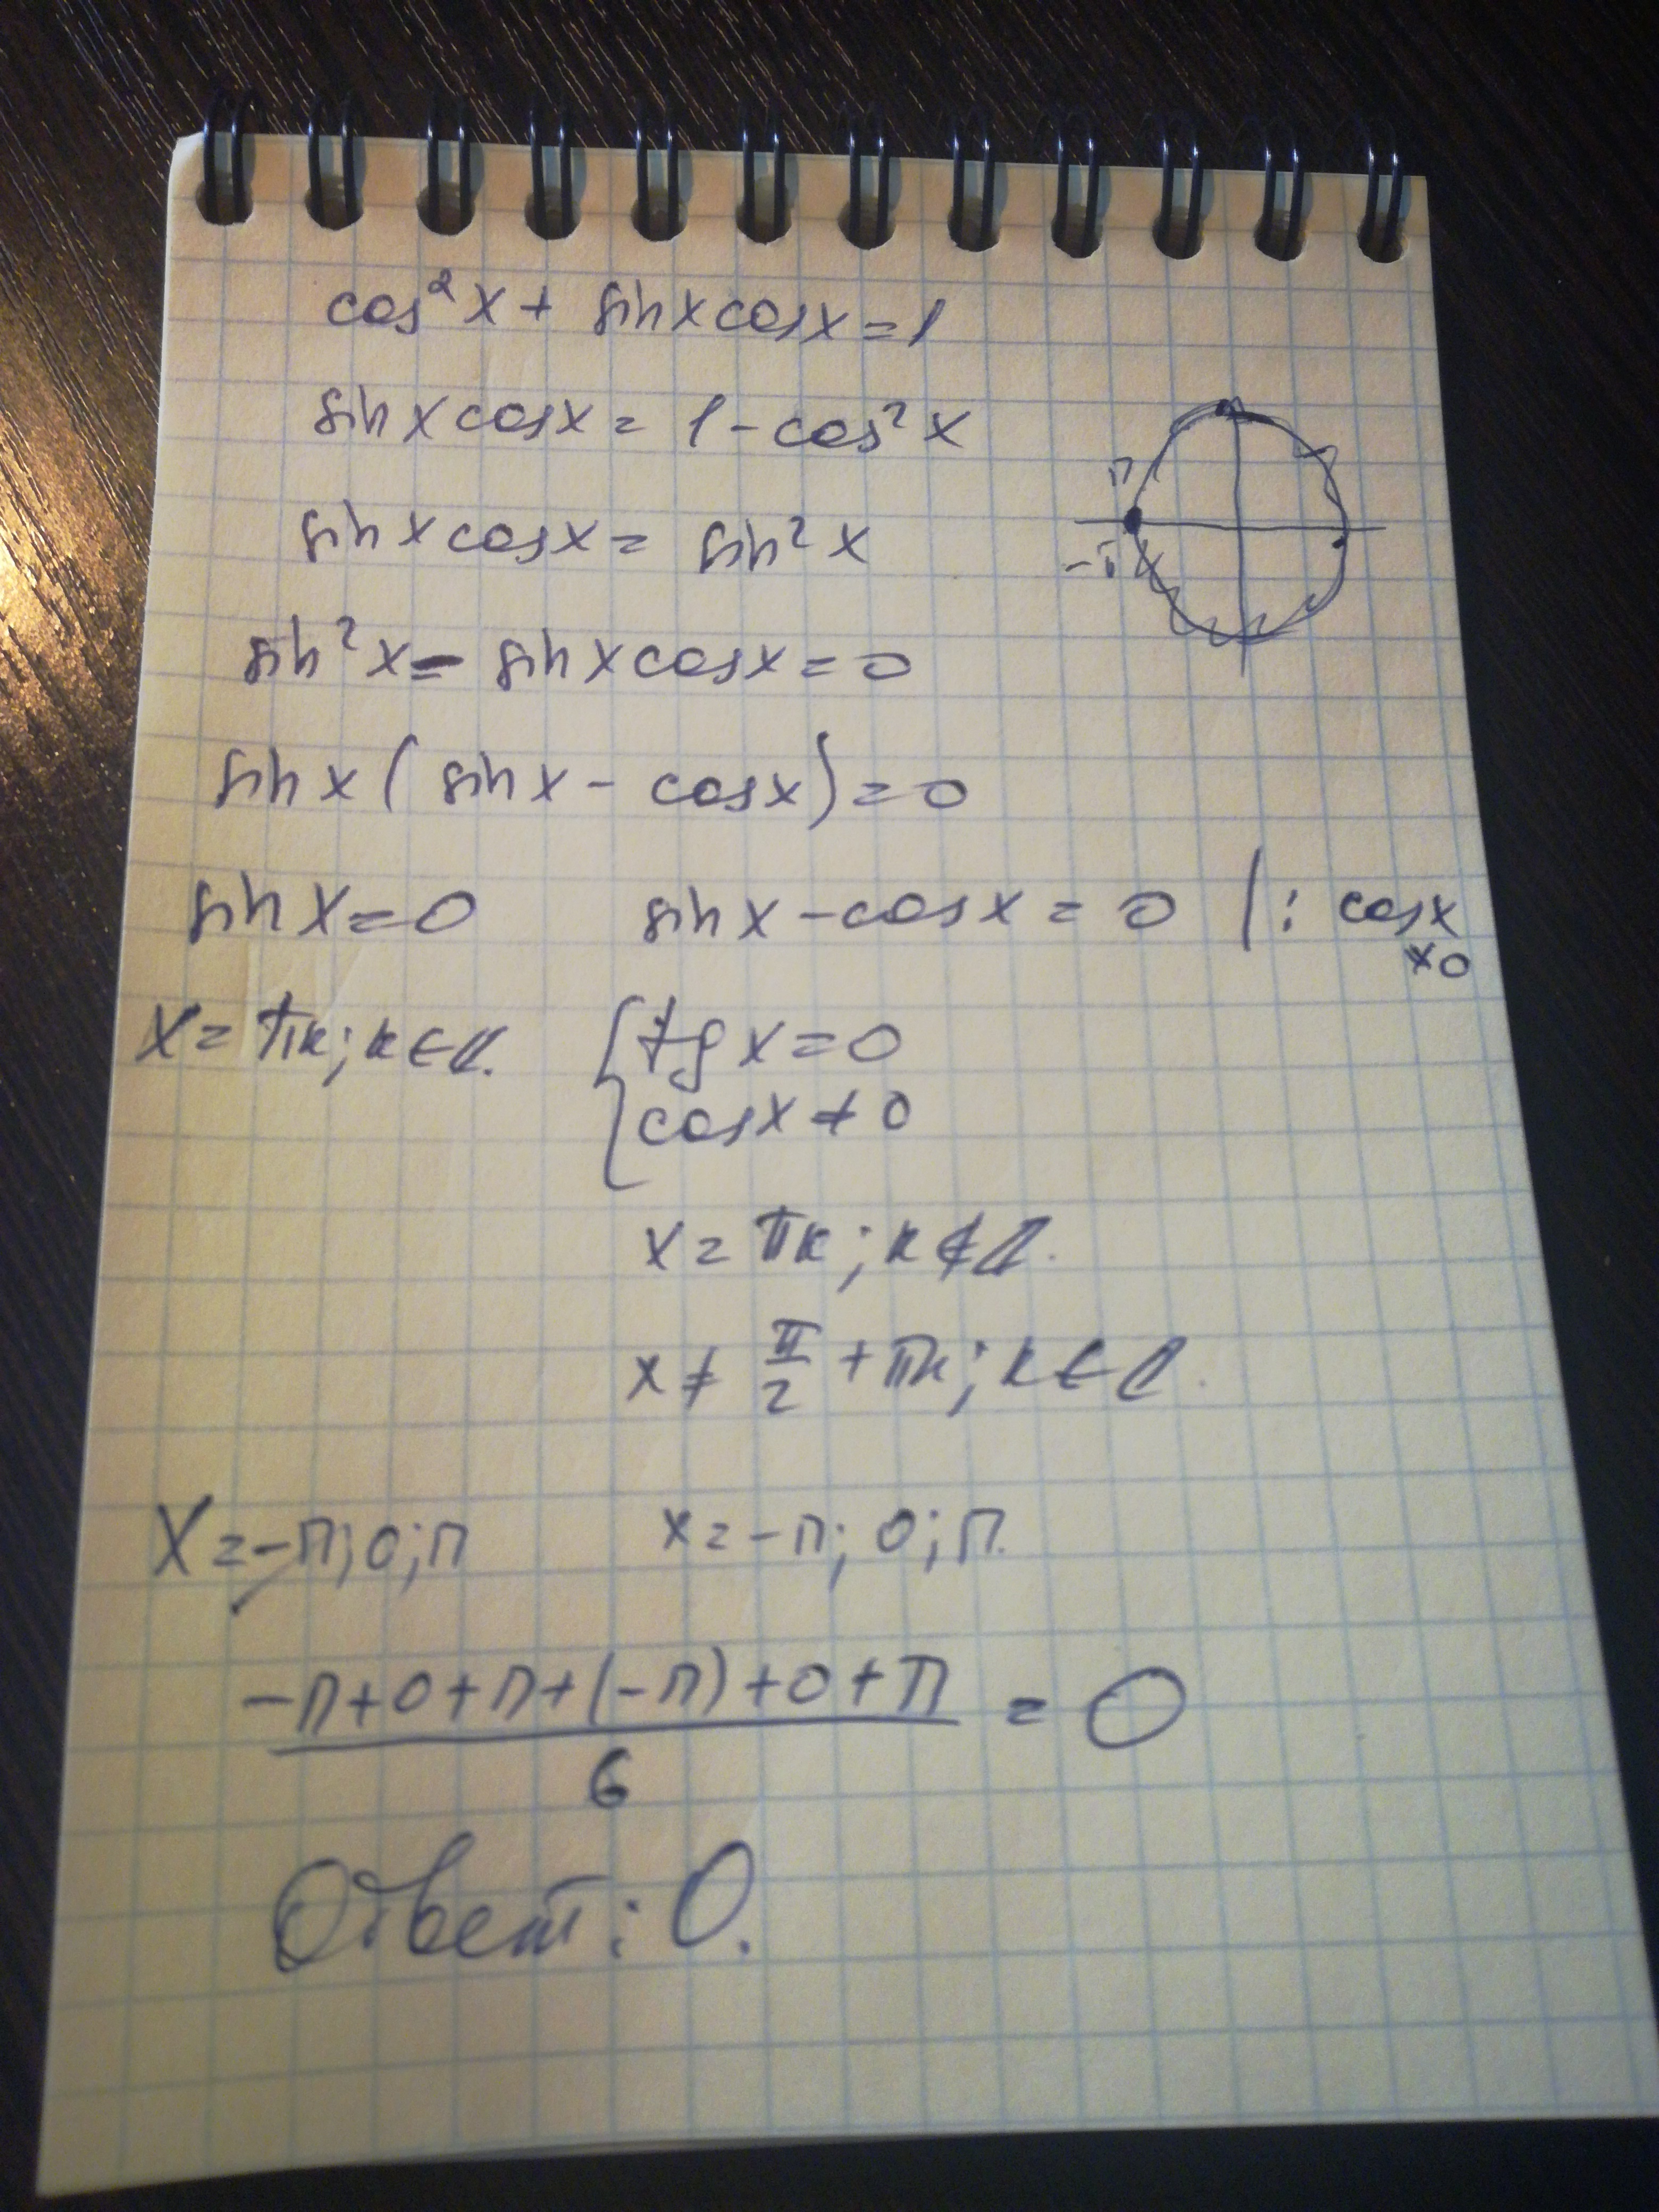 cos²x + sinxcosx = 1
sinxcosx = 1 - cos²x
sinxcosx = sin²x
π
-π
sin²x - sinxcosx = 0
sinx(sinx - cosx) = 0
sinx = 0 sinx - cosx = 0 |: cosx
≠0
x = πk; k∈Z. { tgx = 0
cosx ≠ 0
x = πk; k∈Z.
x ≠ π/2 + πk; k∈Z.
x = -π; 0; π x = -π; 0; π.
(-π+0+π+(-π)+0+π)/6 = 0
Ответ: 0.